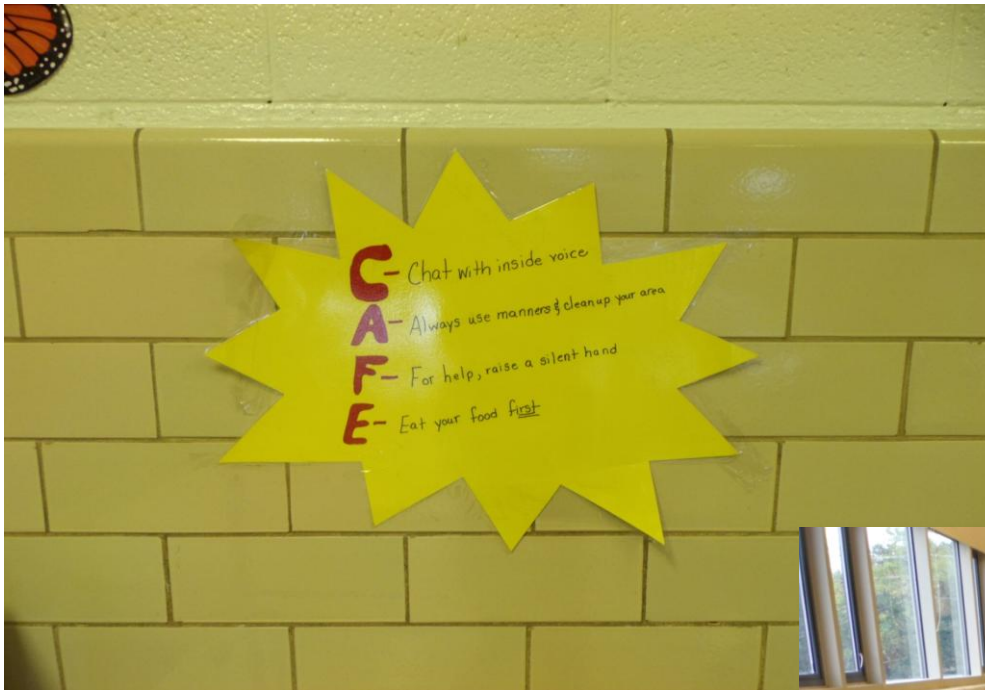 C- Chat with inside voice
A- Always use manners & clean up your area
F- For help, raise a silent hand
E- Eat your food first